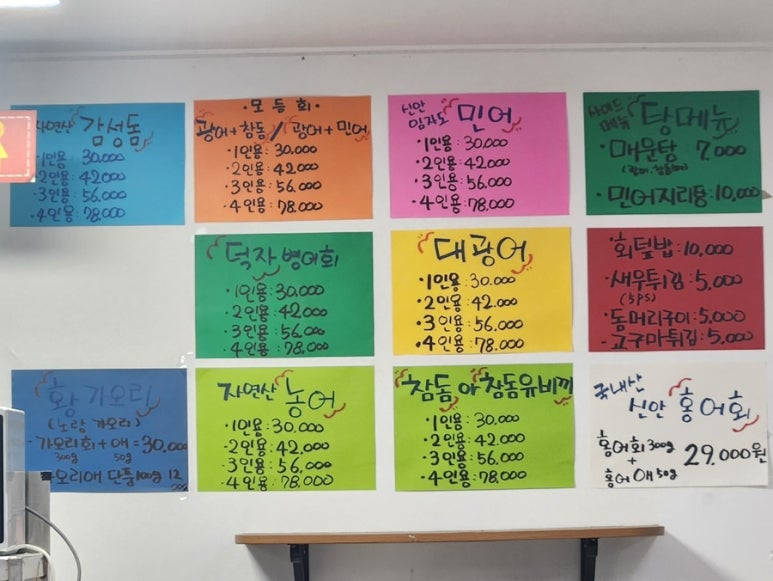 자연산 감성돔
·1인용 30.000
·2인용 42.000
·3인용 56.000
·4인용 78.000
·모듬회·
광어+참돔/광어+민어
·1인용: 30.000
·2인용: 42.000
·3인용: 56.000
·4인용: 78.000
신안 임자도 민어
·1인용: 30.000
·2인용: 42.000
·3인용: 56.000
·4인용: 78.000
사이드 메뉴 탕메뉴
·매운탕 7.000
·민어지리탕: 10,000
덕자 병어회
·1인용: 30.000
·2인용: 42.000
·3인용: 56.000
·4인용: 78.000
대광어
·1인용: 30.000
·2인용: 42.000
·3인용: 56.000
·4인용: 78.000
·회덮밥: 10,000
·새우튀김: 5,000
(5PS)
·돔머리구이: 5,000
·고구마튀김: 5,000
황가오리
(노랑 가오리)
·가오리회+애=30,000
300g 50g
오리애 단품 100g 12
자연산 농어
·1인용: 30.000
·2인용: 42.000
·3인용: 56.000
·4인용: 78.000
참돔 야참돔유비끼
·1인용: 30.000
·2인용: 42.000
·3인용: 56.000
·4인용: 78.000
국내산
신안 홍어회
홍어회 300g
+
홍어애 50g
29.000원